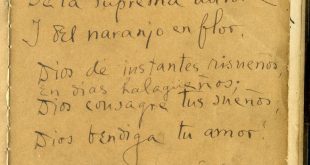 De la suprema
Y del naranjo en flor.
Dios de instantes risueños,
en días halagueños;
Dios consagre tus sueños,
Dios bendiga tu amor.